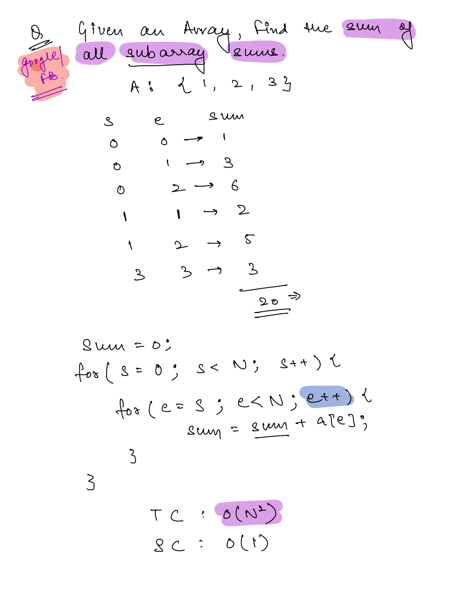 Q. Given an Array, Find the sum of
all subarray sums.
google/
FB.
A : { 1, 2, 3 }
s e sum
0 0 → 1
0 1 → 3
0 2 → 6
1 1 → 2
1 2 → 5
3 3 → 3
20 ⇒
Sum = 0;
for( s = 0 ; s < N ; s++ ) {
for( e = s ; e < N ; e++ ) {
sum = sum + a[e];
}
}
TC : O(N²)
SC : O(1)